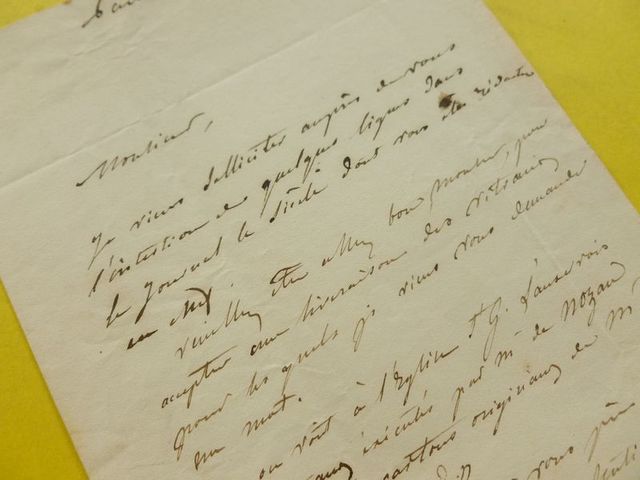 Monsieur,
Je viens solliciter auprès de vous
l'insertion de quelques lignes dans
le Journal le Siècle dont vous êtes rédacteur
en chef.
veuillez être assez bon monsieur, pour
accepter une livraison des vitraux
pour les quels je viens vous demander
un mot.
on voit à l'Eglise St G. L'auxerrois
exécutés par mr de Nozan
cartons originaux de Mr
vous prie